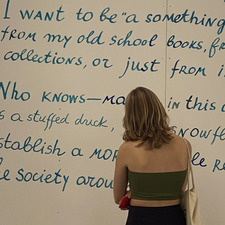 I want to be "a something
from my old school books, fr
collections, or just from i
Who knows—ma in this c
s a stuffed duck, snowfl
stablish a mor le re
le society arou